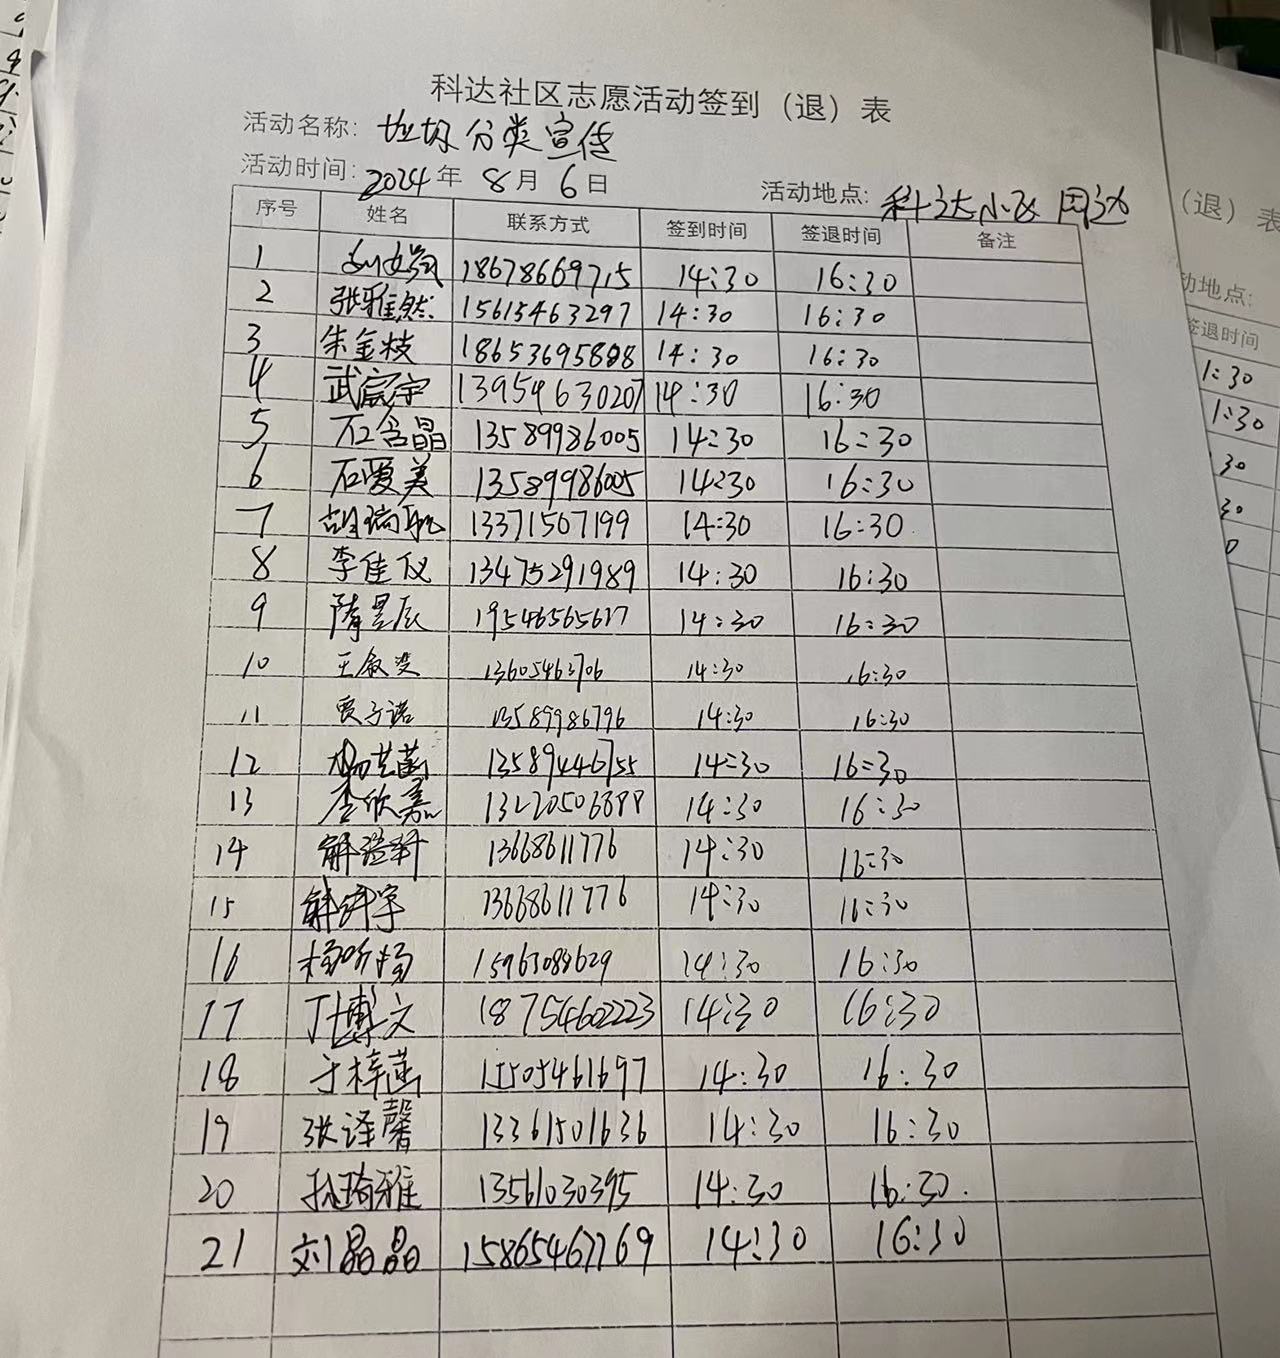 科达社区志愿活动签到（退）表
活动名称: 垃圾分类宣传
活动时间: 2024年 8月 6日 活动地点: 科达小区 周边
序号 姓名 联系方式 签到时间 签退时间 备注
1 18678669715 14:30 16:30
2 张雅然 15615463297 14:30 16:30
3 朱金枝 18653695888 14:30 16:30
4 武宸宇 13954630207 14:30 16:30
5 石含晶 13589986005 14:30 16:30
6 石爱美 13589986005 14:30 16:30
7 胡瑞航 13371507199 14:30 16:30
8 李佳仪 13475291989 14:30 16:30
9 隋昱辰 19546565617 14:30 16:30
10 王叙雯 13605463706 14:30 16:30
11 贾子诺 13589986796 14:30 16:30
12 杨芷菡 13589446755 14:30 16:30
13 李欣嘉 13220506888 14:30 16:30
14 13668611776 14:30 16:30
15 13668611776 14:30 16:30
16 15963088629 14:30 16:30
17 丁博文 18754602223 14:30 16:30
18 于梓菡 15505461697 14:30 16:30
19 张译馨 13361501636 14:30 16:30
20 孙琦雅 13561030395 14:30 16:30
21 刘晶晶 15865467769 14:30 16:30
（退）表
动地点:
签退时间
1:30
1:30
30
30
0